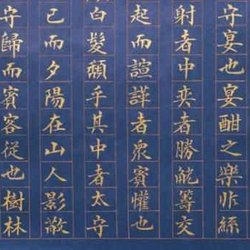 守宴也宴酣之樂非絲
射者中奕者勝觥籌交
起而諠譁者衆賓懽也
白髮頹乎其中者太守
已而夕陽在山人影散
守歸而賓客從也樹林